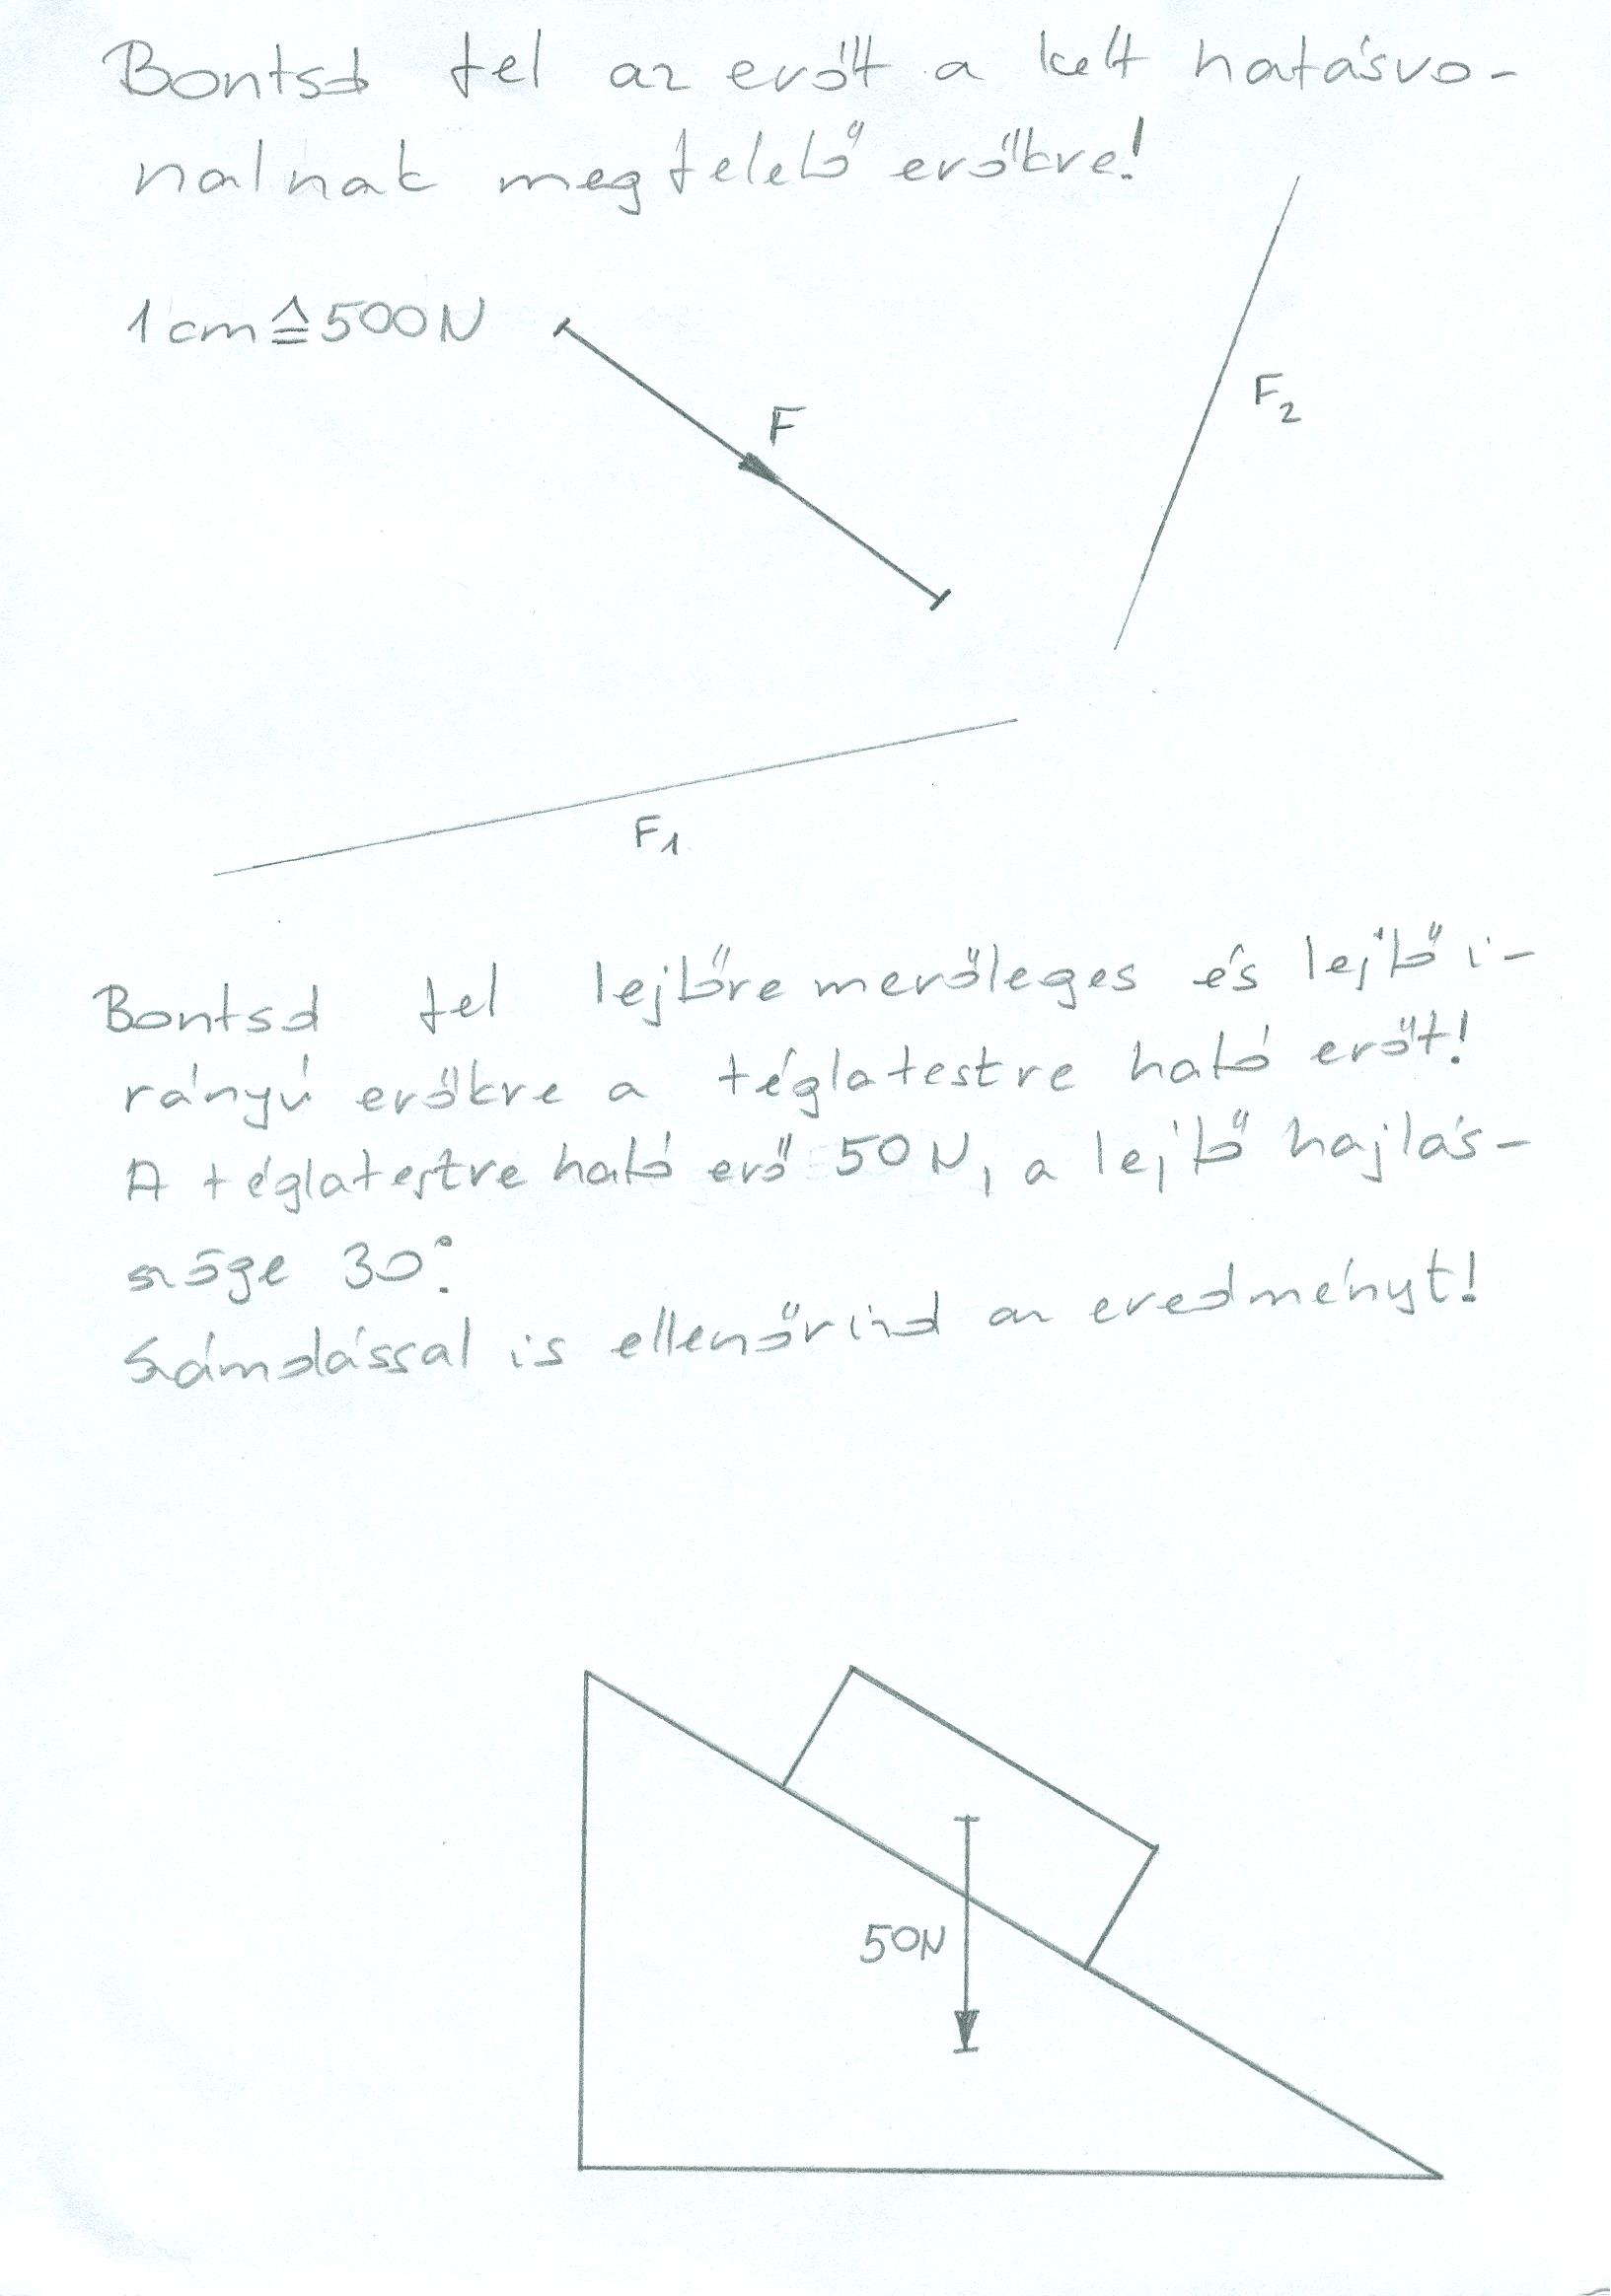 Bontsd fel az erőt a két hatásvo-
nalnak megfelelő erőkre!
1 cm ≙ 500N
F
F2
F1
Bontsd fel lejtőre merőleges és lejtő i-
rányú erőkre a téglatestre ható erőt!
A téglatestre ható erő 50 N, a lejtő hajlás-
szöge 30°.
Számolással is ellenőrizd az eredményt!
50N